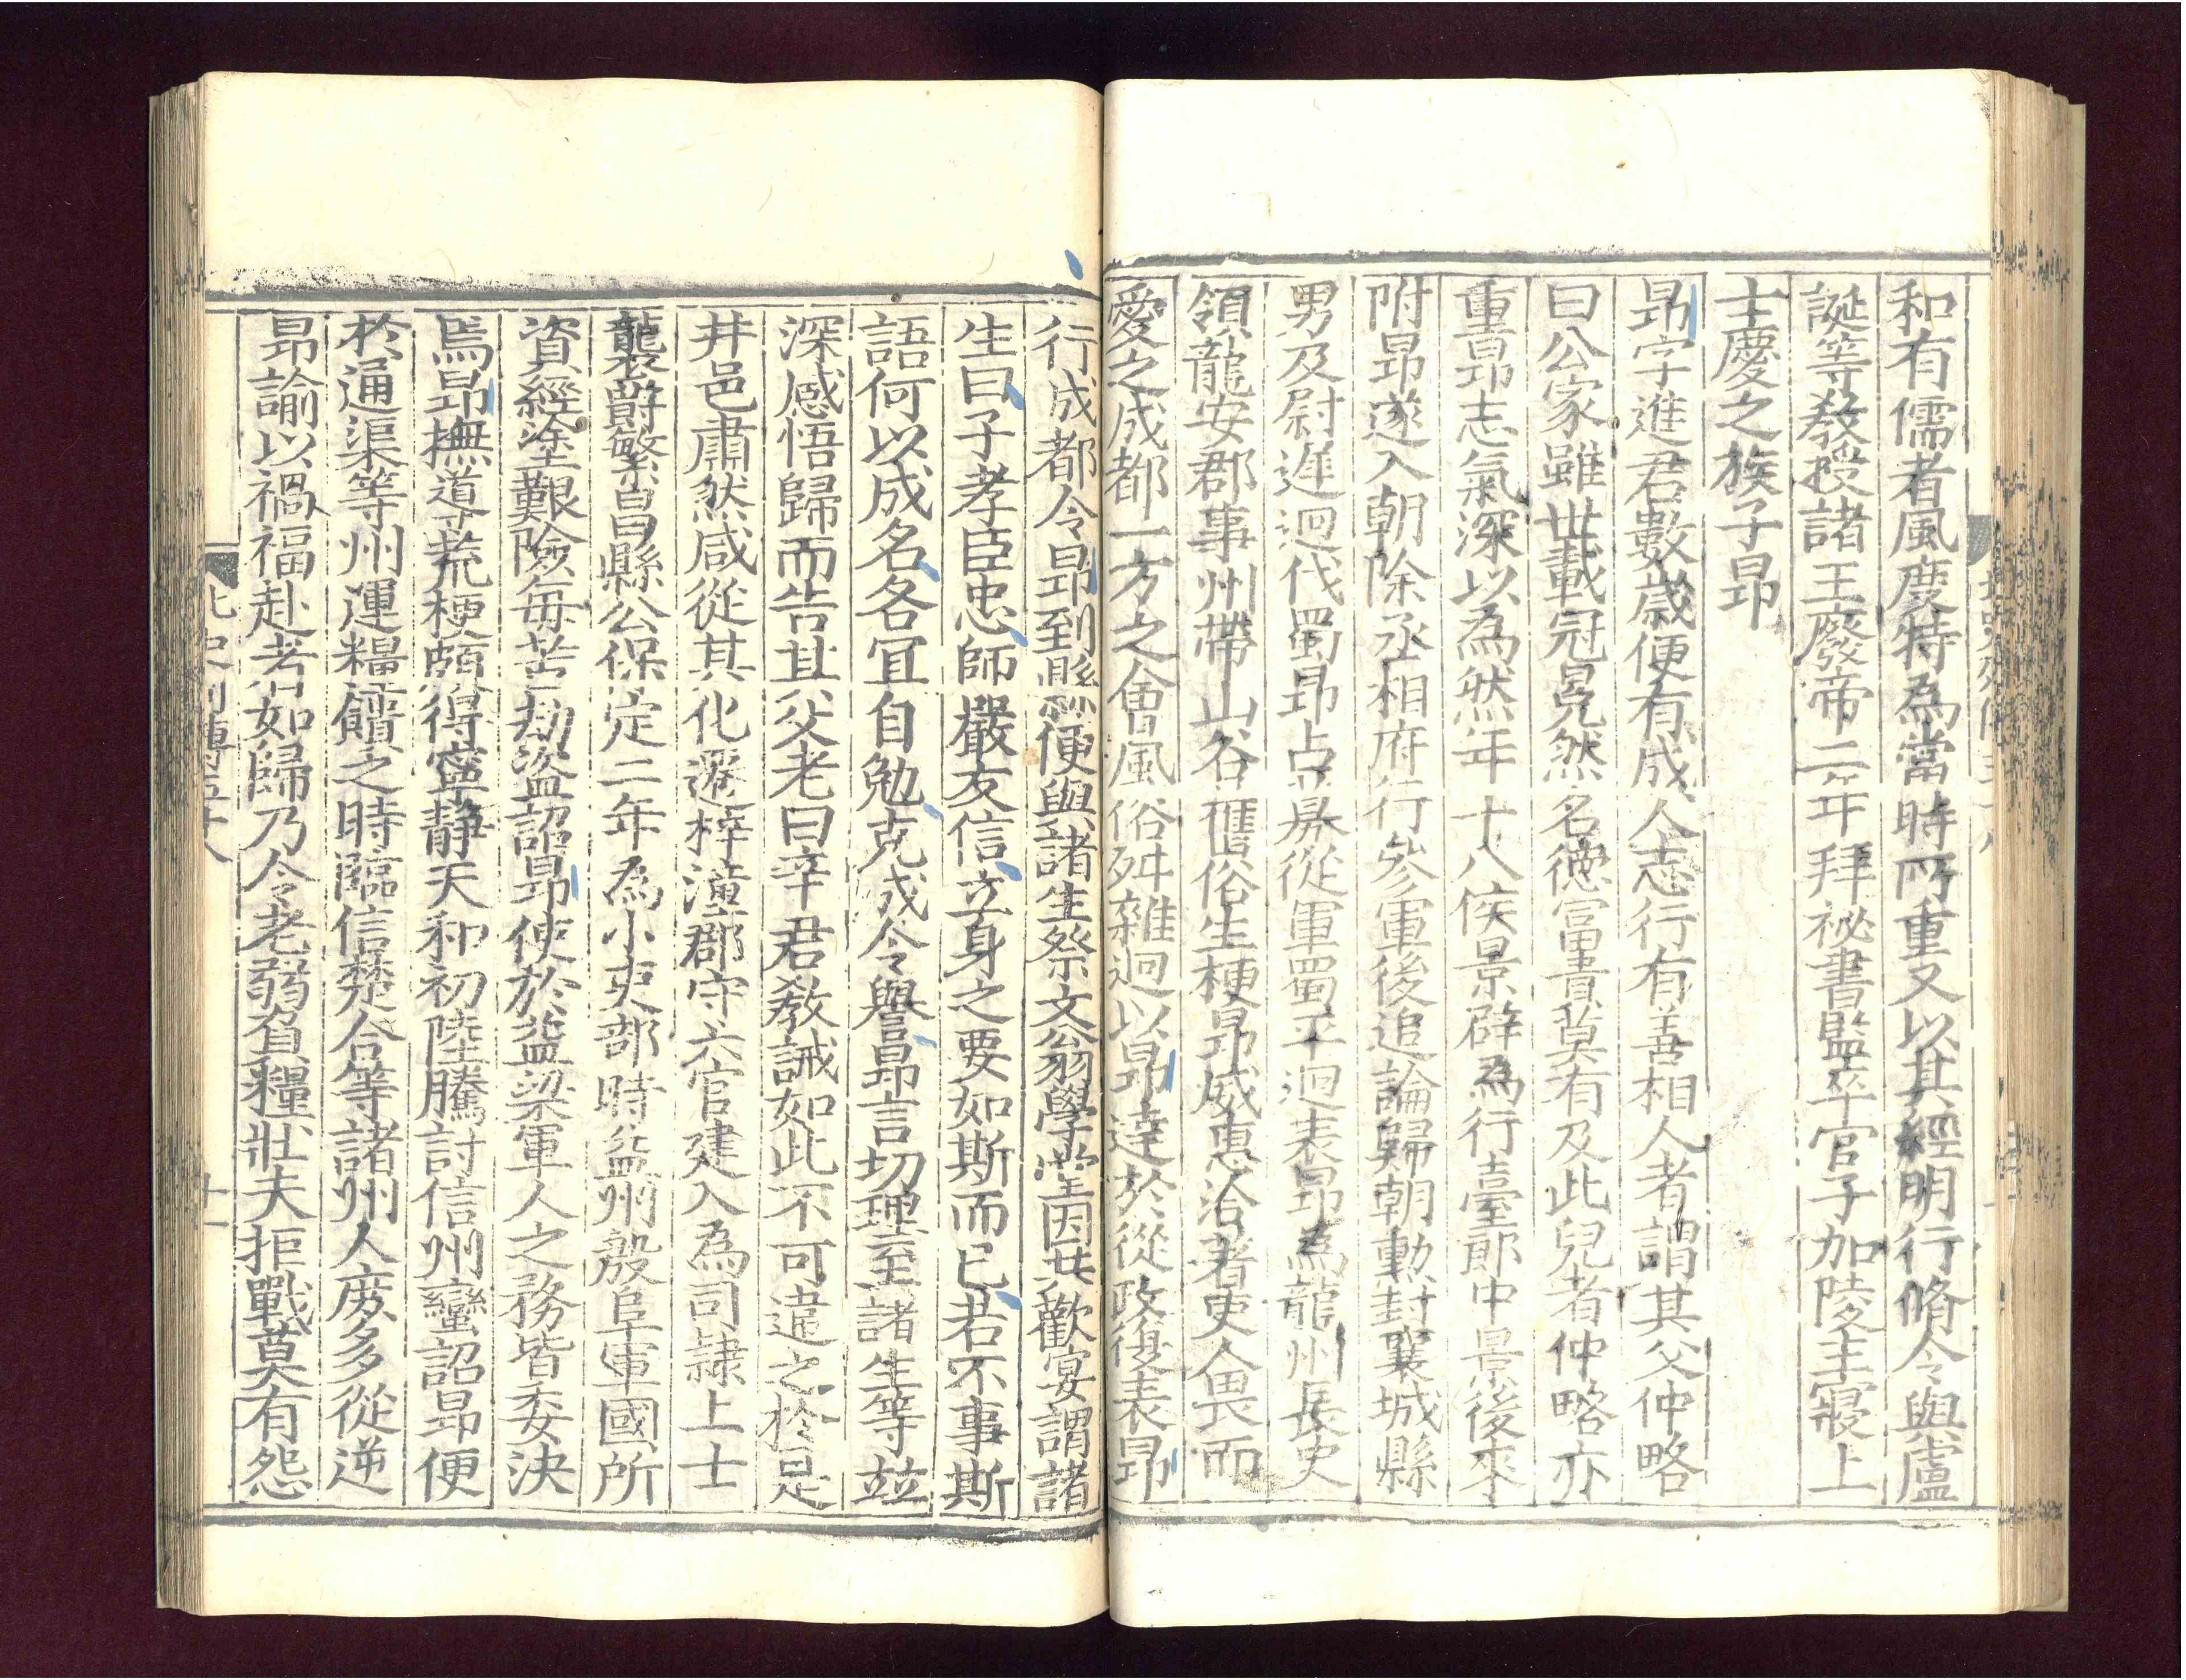 和有儒者風度特為當時所重又以其經明行脩令與盧
誕等教授諸王廢帝二年拜祕書監卒官子加陵主寢上
士慶之族子昂
昂字進君數歲便有成人志行有善相人者謂其父仲略
曰公家雖世載冠冕然名德富貴莫有及此兒者仲略亦
重昂志氣深以為然年十八侯景辟為行臺郎中景後來
附昂遂入朝除丞相府行參軍後追論歸朝勳封襄城縣
男及尉遲迥代蜀昂占募從軍蜀平迥表昂為龍州長史
領龍安郡事州帶山谷舊俗生梗昂威惠洽著吏人畏而
愛之成都一方之會風俗舛雜迥以昂達於從政復表昂
行成都令昂到縣便與諸生祭文翁學堂因共歡宴謂諸
生曰子孝臣忠師嚴友信立身之要如斯而已若不事斯
語何以成名各宜自勉克成令譽昂言切理至諸生等竝
深感悟歸而告其父老曰辛君敎誡如此不可違之於是
井邑肅然咸從其化遷梓潼郡守六官建入為司隷上士
襲爵繁昌縣公保定二年為小吏部時益州殷阜軍國所
資經塗艱險每苦劫盜詔昂使於益梁軍人之務皆委決
焉昂撫導荒梗頗得寧靜天和初陸騰討信州蠻詔昂便
於通渠等州運糧饋之時臨信楚合等諸州人庶多從逆
昂諭以禍福赴者如歸乃令老弱負糧壯夫拒戰莫有怨
北史列傳五十八
十一